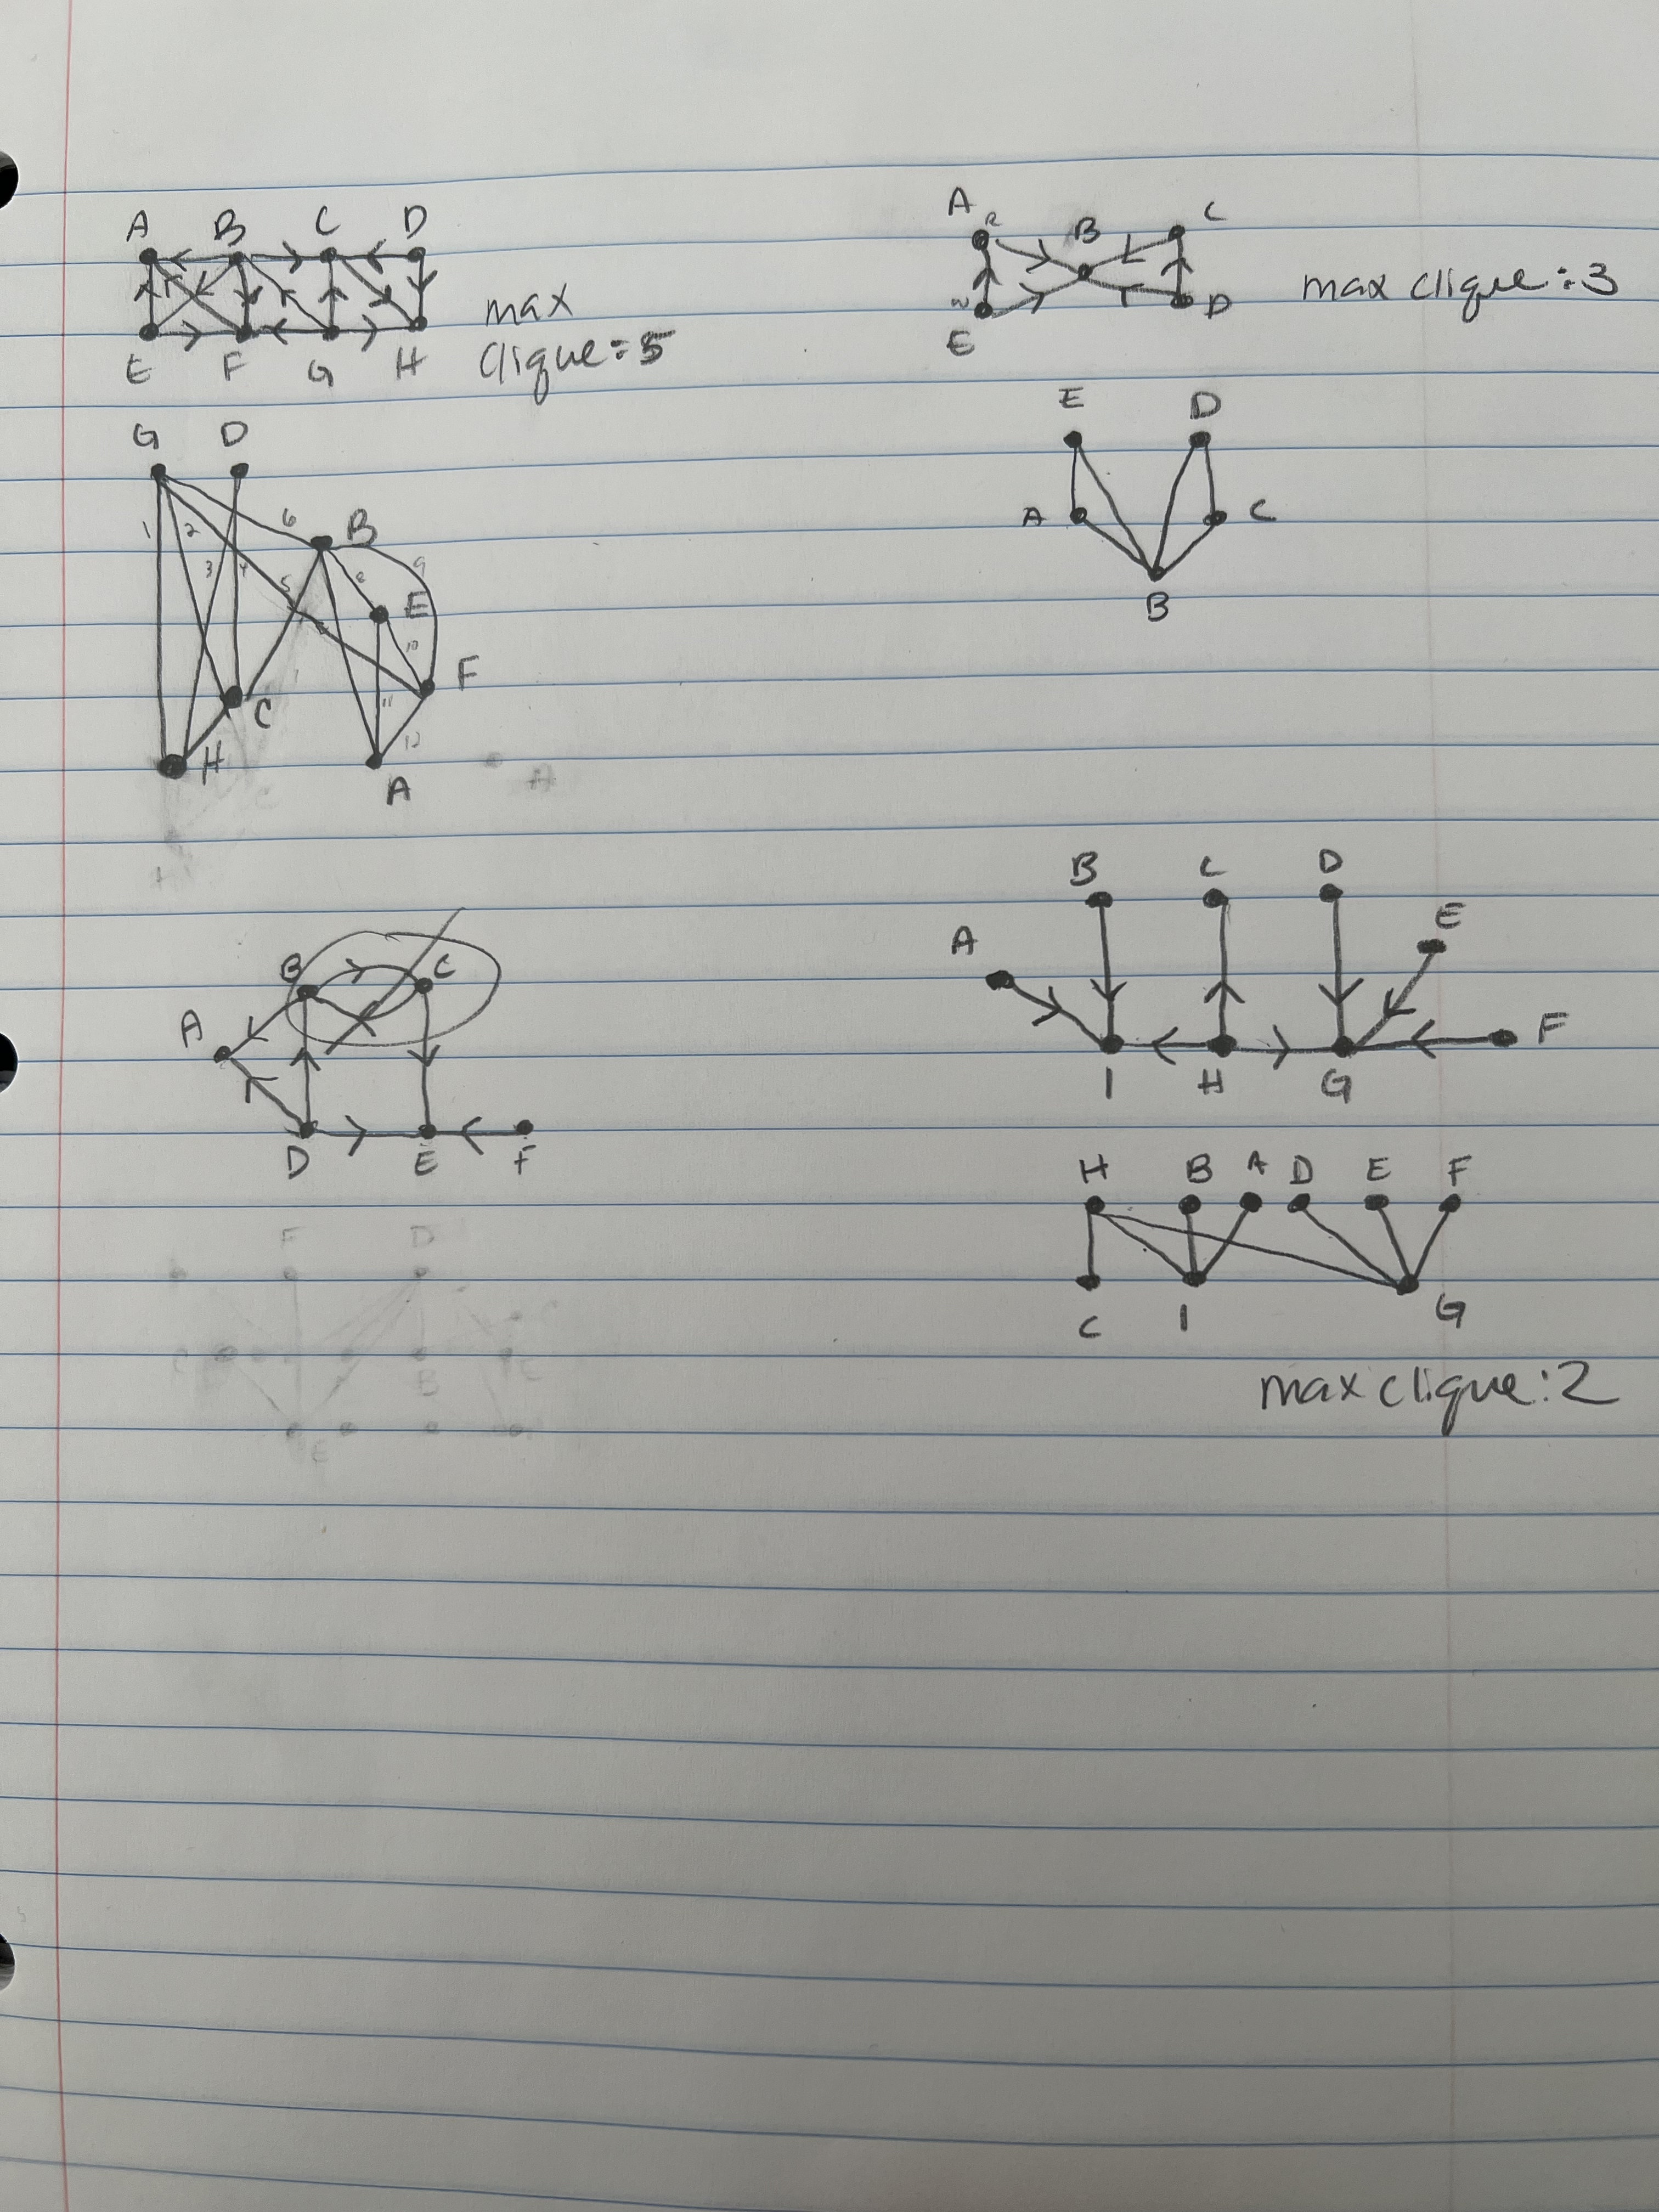 A B C D
max
clique: 5
E F G H
A B C
max clique: 3
E D
G D
1 2 3 4 5 6 B 8 9
E
10 F
11
C
12
H
A
A
E D
A C
B
B C
A
D E F
F D
C
B
E
B C D
A E
F
I H G
H B A D E F
C I G
max clique: 2